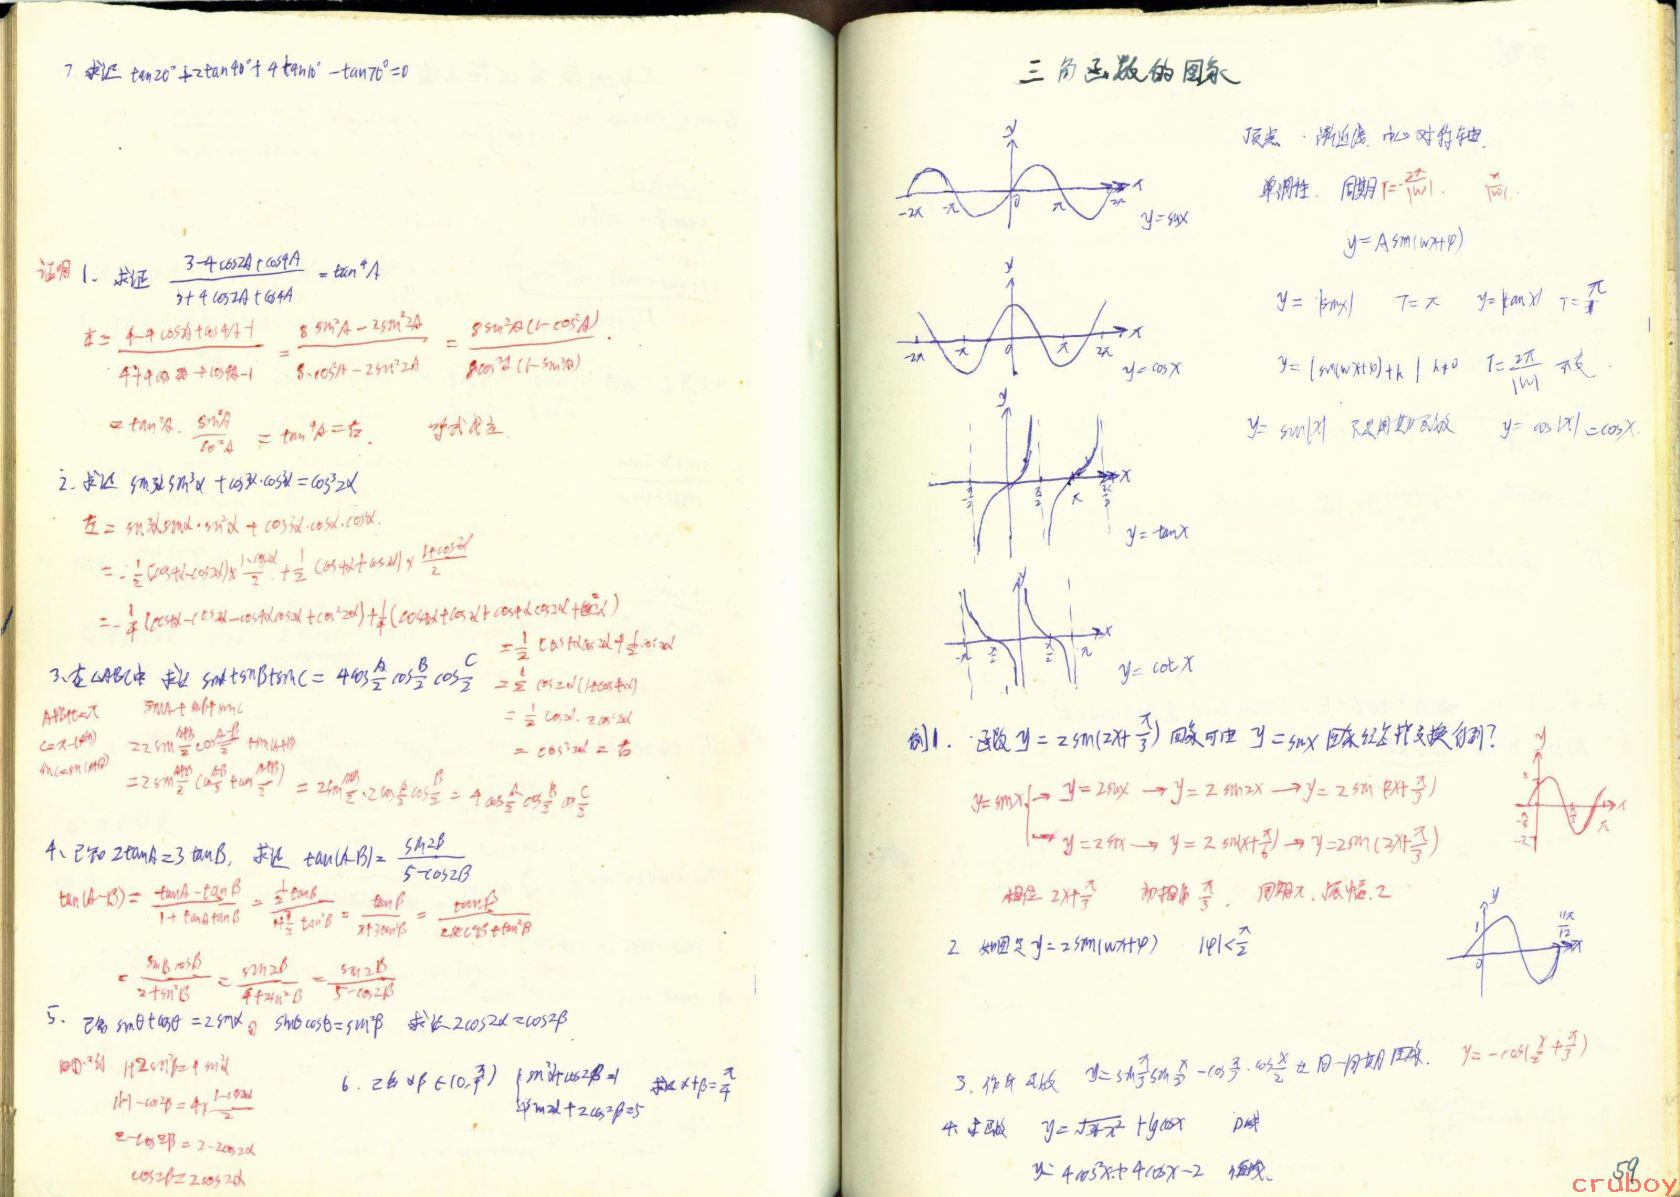 7. 求证 tan20°+2tan40°+4tan10°-tan70°=0
证明 1. 求证 (3-4cos2A+cos4A)/(3+4cos2A+cos4A) = tan⁴A
= (8sin²A-2sin²2A)/(8cos²A-2sin²2A) = 8sin²A(1-cos²A)/8cos²A(1-sin²A)
= tan²A · sin²A/cos²A = tan⁴A = 右. 等式成立
2. 求证 sin3αsin³α+cos3α·cos³α=cos³2α
左= sin3αsinα·sin²α+cos3α·cosα·cos²α
=-1/2(cos4α-cos2α)×(1-cos2α)/2+1/2(cos4α+cos2α)×(1+cos2α)/2
=-1/4(cos4α-cos2α-cos4αcos2α+cos²2α)+1/4(cos4α+cos2α+cos4αcos2α+cos²2α)
=1/2cos4αcos2α+1/2cos2α
=1/2cos2α(1+cos4α)
=1/2cos2α·2cos²2α
=cos³2α=右
3. 在△ABC中 求证 sinA+sinB+sinC=4cos A/2 cos B/2 cos C/2
A+B+C=π
C=π-(A+B)
sinC=sin(A+B)
sinA+sinB+sinC
=2sin (A+B)/2 cos (A-B)/2+sin(A+B)
=2sin (A+B)/2 (cos (A-B)/2+cos (A+B)/2)=2sin (A+B)/2·2cos A/2 cos B/2=4cos A/2 cos B/2 cos C/2
4. 已知2tanA=3tanB, 求证 tan(A-B)=sin2B/(5-cos2B)
tan(A-B)=(tanA-tanB)/(1+tanAtanB)=(1/2 tanB)/(1+3/2 tan²B)=tanB/(2+3tan²B)=tanB/(2sec²B+tan²B)
=sinBcosB/(2+sin²B)=sin2B/(4+2sin²B)=sin2B/(5-cos2B)
5. 已知 sinθ+cosθ=2sinα, sinθcosθ=sin²β 求证2cos2α=cos2β
1+2sin²β=4sin²α
1+1-cos2β=4×(1-cos2α)/2
2-cos2β=2-2cos2α
cos2β=2cos2α
6. 已知 α,β∈(0, )
求证 α+β=π/4
三角函数的图象
顶点 . 渐近线. 中心 对称轴.
单调性. 周期T=2π/|w|. π/|w|.
y=Asin(wx+φ)
y=|sinx| T=π y=|tanx|
y=|sin(wx+φ)+k| k≠0 T=2π/|w| 不变.
y=sin|x| 不是周期函数 y=cos|x|=cosx.
-2π -π 0 π 2π x y
y=sinx
-2π -π 0 π 2π x y
y=cosx
y=tanx
y=cotx
例1. 函数y=2sin(2x+π/3)图象可由 y=sinx 图象经怎样变换得到?
y=sinx → y=2sinx → y=2sin2x → y=2sin(2x+π/3)
→ y=2sinx → y=2sin(x+π/3) → y=2sin(2x+π/3)
相位 2x+π/3 初相角 π/3. 周期π. 振幅.2
2. 如图是y=2sin(wx+φ) |φ|<π/2
1 0 11π/12 x y
3. 作出函数 y=sin π/3 sin x/2-cos π/3·cos x/2 在同一周期图象. y=-cos(x/2+π/3)
4. 求函数
y=4cos²x+4cosx-2 值域.
59
cruboy